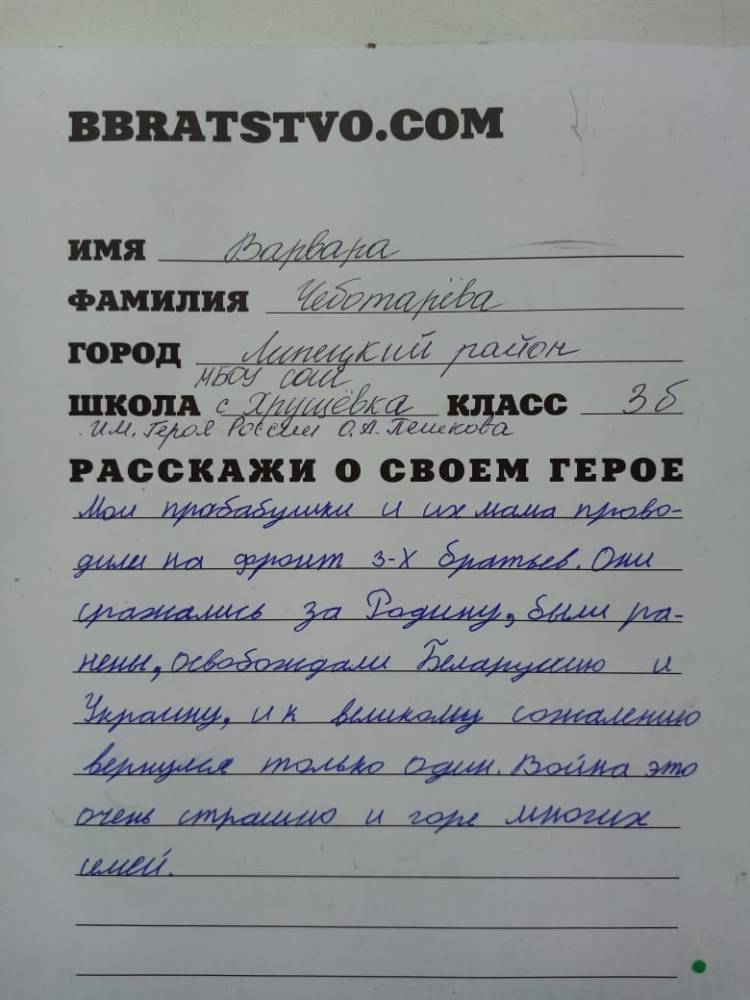 BBRATSTVO.COM
ИМЯ Варвара
ФАМИЛИЯ Чеботарёва
ГОРОД Липецкий район
МБОУ СОШ
ШКОЛА с Хрущёвка КЛАСС 3б
им. Героя России О.А. Пешкова
РАССКАЖИ О СВОЕМ ГЕРОЕ
Мои прабабушки и их мама прово-
дили на фронт 3-х братьев. Они
сражались за Родину, были ра-
нены, освобождали Беларуссию и
Украину, и к великому сожалению
вернулся только один. Война это
очень страшно и горе многих
семей.